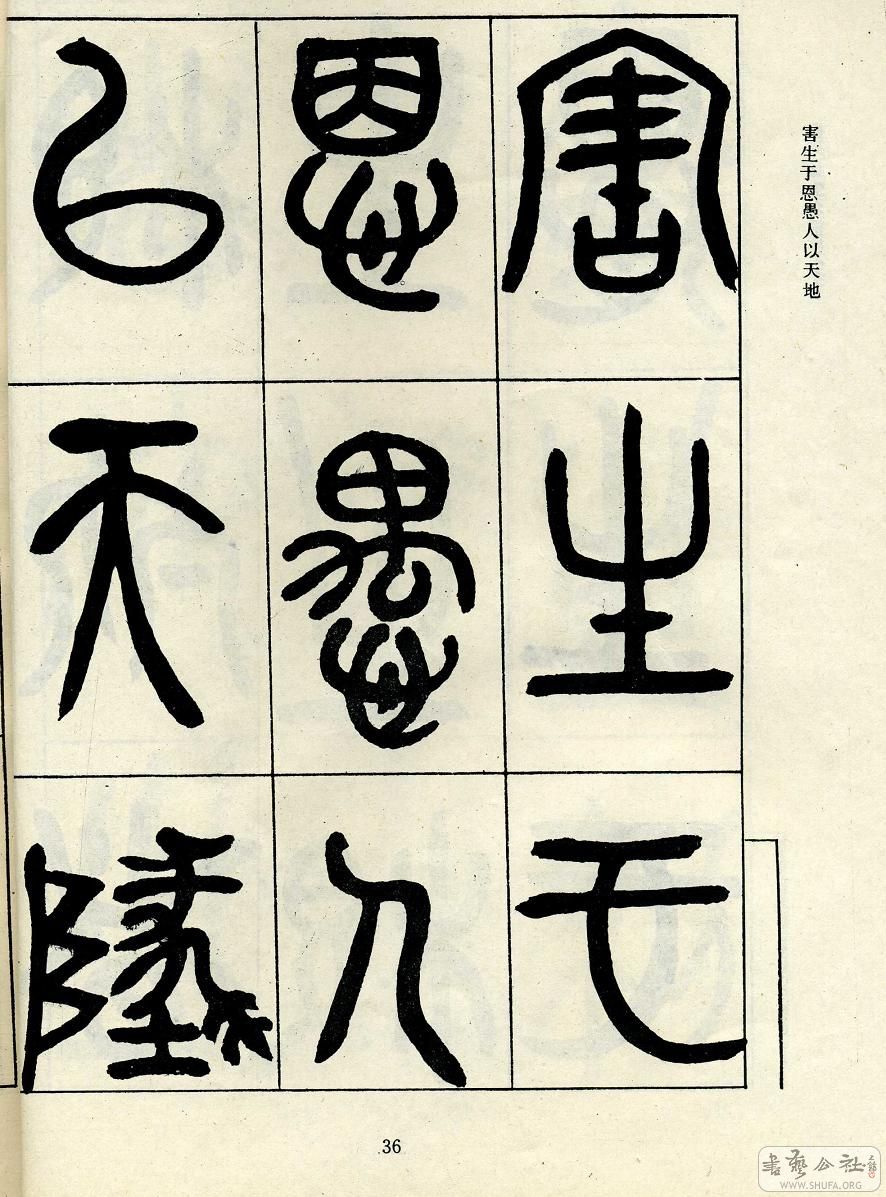 害生于
恩愚人
以天地
害生于恩愚人以天地
36
書藝公社
WWW.SHUFA.ORG